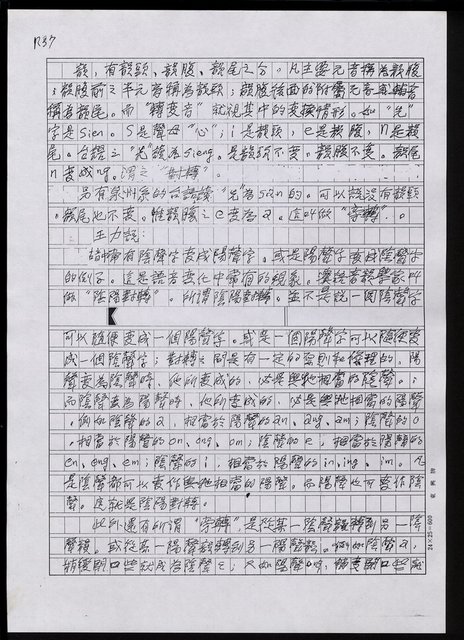 韻，有韻頭、韻腹、韻尾之分。凡主要元音稱為韻腹
；韻腹前之半元音稱為韻頭；韻腹後面的所屬元音或輔音
稱為韻尾。而“轉變音”就視其中的变換情形。如“先”
字是sien。S是聲母“心”；i是韻頭，e是韻腹，n是韻
尾。台語之“先”讀為sieng。是韻頭不変。韻腹不変。韻尾
n变成ng。謂之“對轉”。
另有泉州系的台語讀“先”為san的。可以說沒有韻頭
。韻尾也不変。惟韻腹之e变為a。這叫做“旁轉”。
王力説：
語常有陰聲字变成陽聲字。或是陽聲字变成陰聲字
的例子。這是語音变化中常有的現象。漢語音韻學家叫
做“陰陽對轉”。所謂陰陽對轉。並不是說一個陰聲字
可以隨便变成一個陽聲字。或是一個陽聲字可以隨便变
成一個陰聲字；對轉之間是有一定的原則和條理的。陽
聲变為陰聲時，他所变成的，必是與他相當的陰聲。；
而陰聲变為陽聲時，他所变成的，必是與他相當的陽聲
。例如陰聲的a，相當於陽聲的an、ang、am；陰聲的o
，相當於陽聲的on、ong、om；陰聲的e，相當於陽聲的
en、eng、em；陰聲的i，相當於陽聲的in、ing、im。凡
是陰聲都可以变作與他相當的陽聲。而陽聲也可变作陰
聲。這就是陰陽對轉。
此外還有所謂“旁轉”，是從某一陰聲韻轉到另一陰
聲韻。或從某一陽聲韻轉到另一陽聲韻。例如陰聲a，
稍微閉口些就成為陰聲e，又如陽聲ang，稍变閉口些就
24×25=600